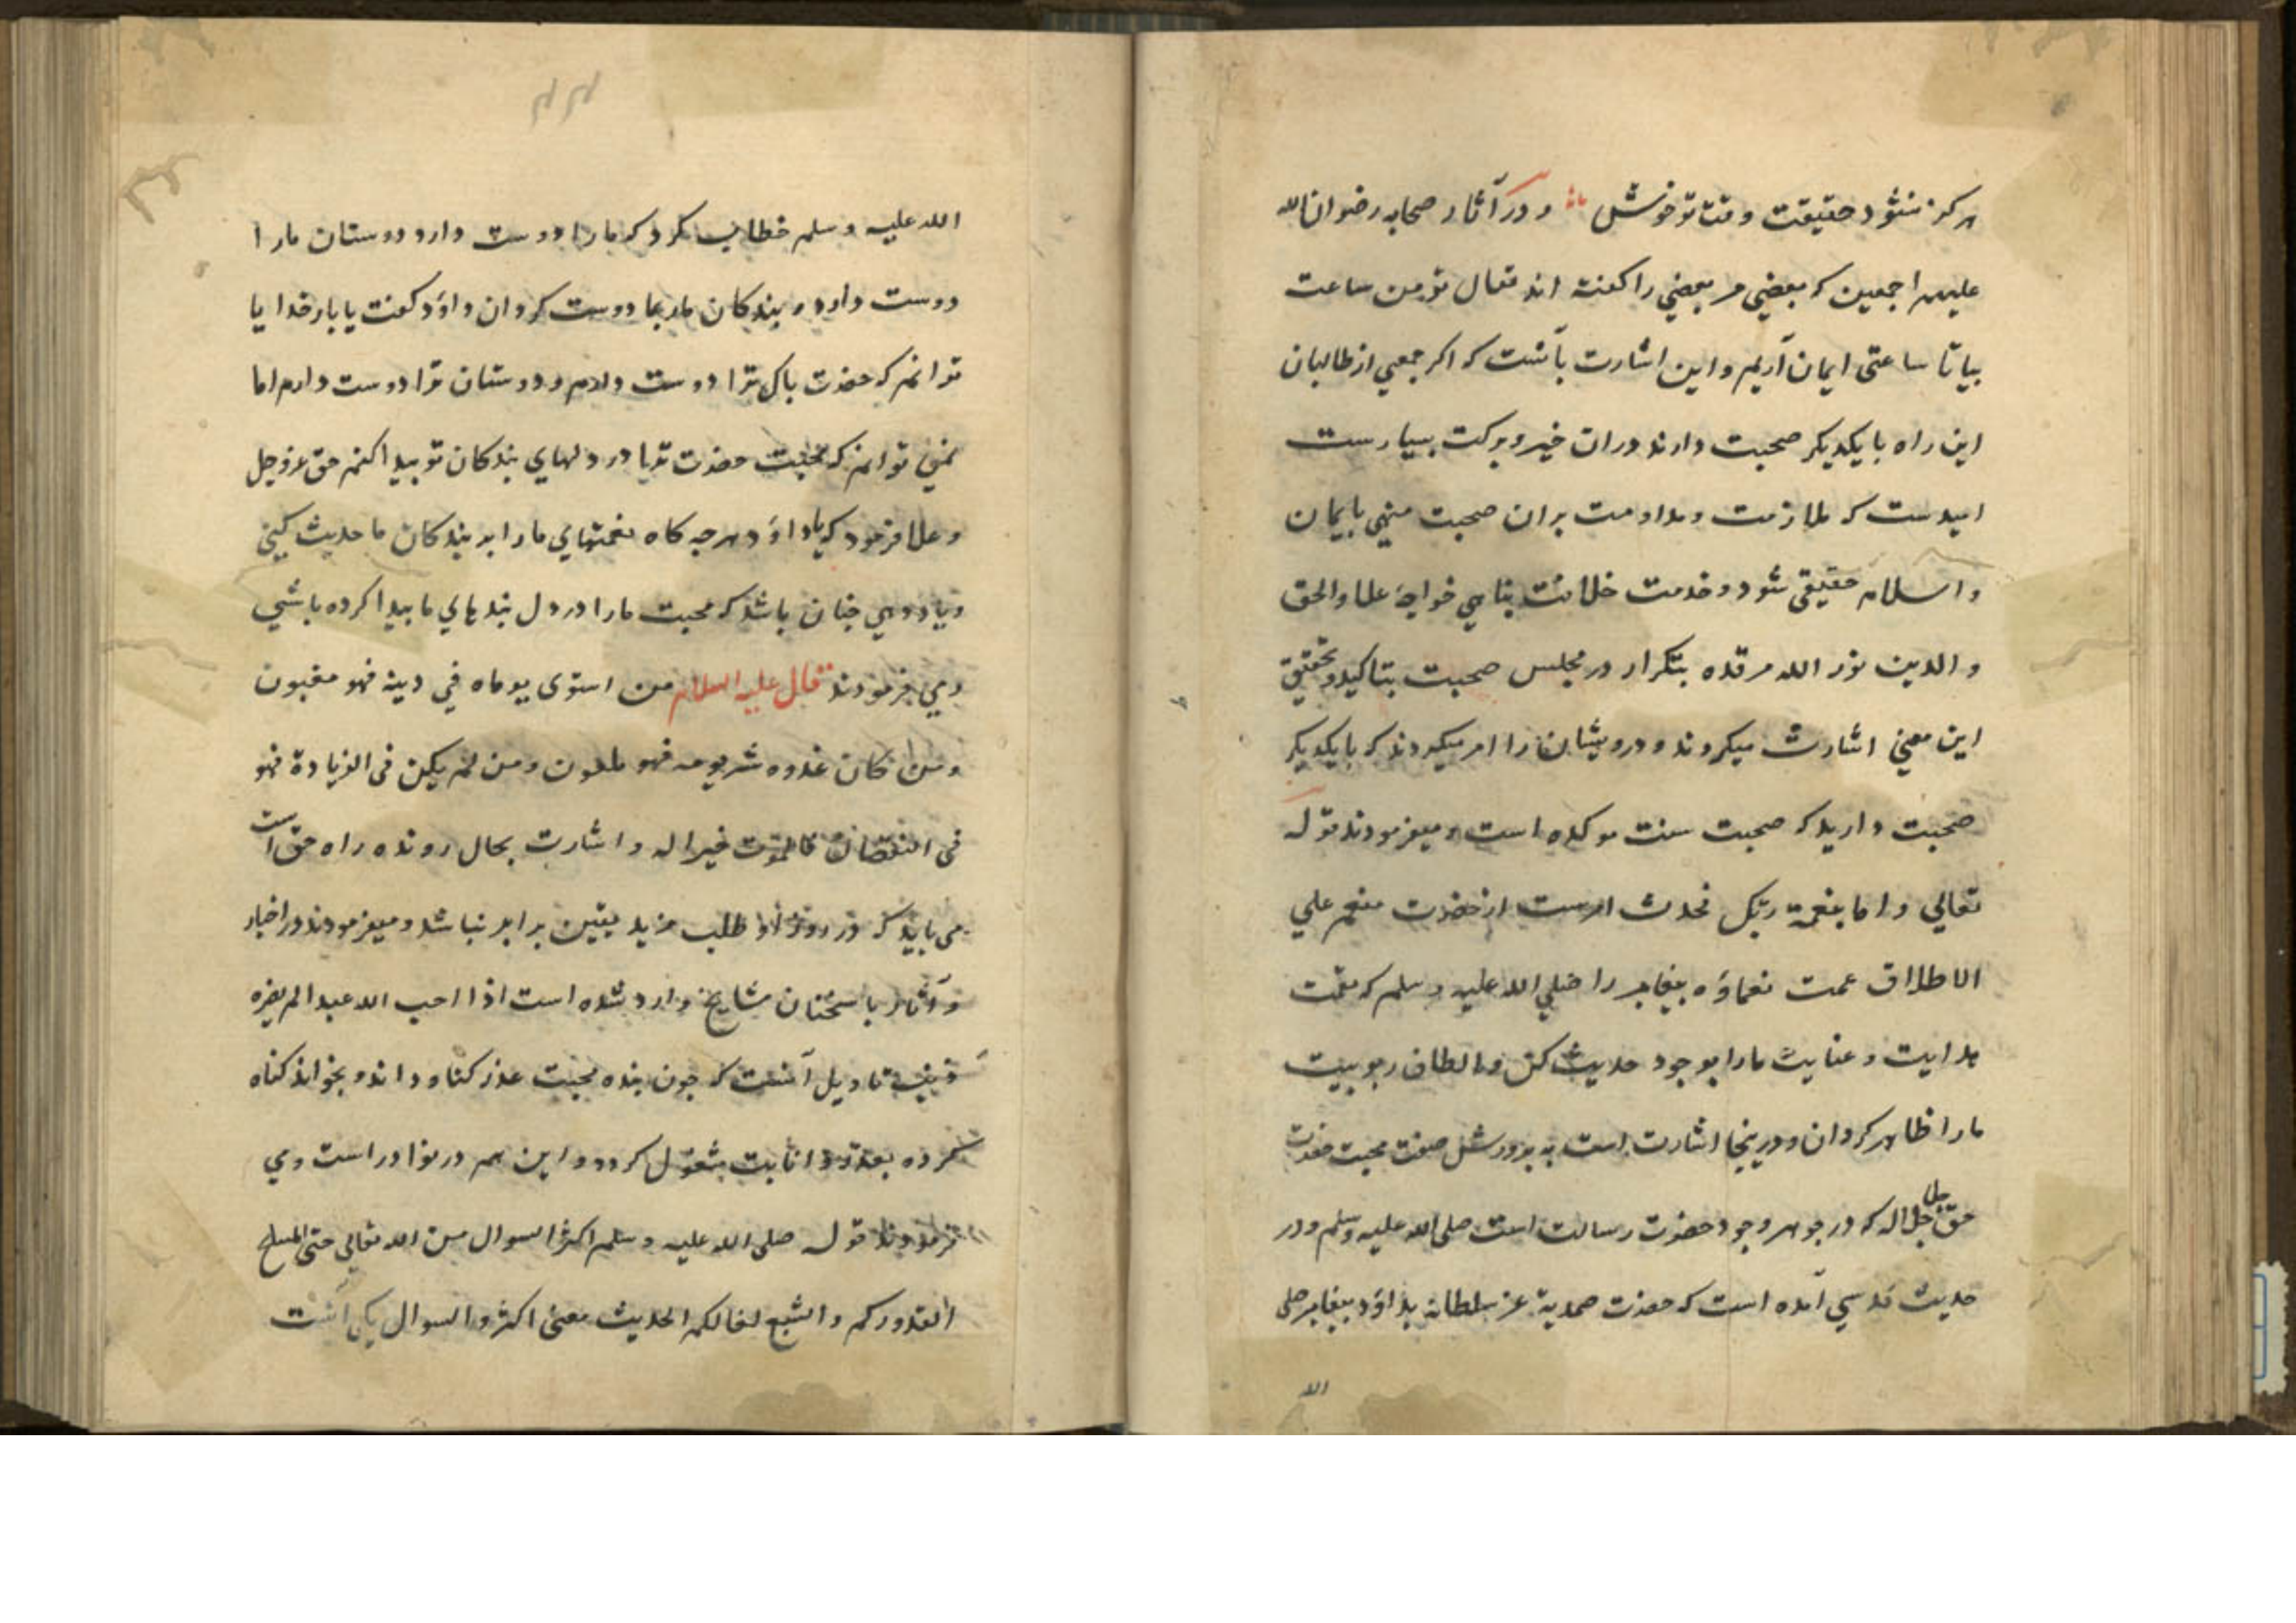 هرکز نشود حقیقت وقت تو خوش و در آثار صحابه رضوان الله
علیهم اجمعین که بعضی مر بعضی را کفته اند تعال نؤمن ساعت
بیا تا ساعتی ایمان آریم و این اشارت بآنست که اکر جمعی از طالبان
این راه با یکدیکر صحبت دارند دران خیر و برکت بسیارست
امیدست که ملازمت و مداومت بران صحبت منتهی بایمان
و اسلام حقیقی شود و خدمت خلافت پناهی خواجه علاء الحق
و الدین نور الله مرقده بتکرار در مجلس صحبت بتاکید و تحقیق
این معنی اشارت میکردند و درویشان را امر میکردند که بایکدیکر
صحبت دارید که صحبت سنت موکده است و میفرمودند قوله
تعالی و اما بنعمة ربک فحدث امرست از حضرت منعم علی
الاطلاق عمت نعماؤه پیغامبر را صلی الله علیه و سلم که نعمت
هدایت و عنایت مارا بوجود حدیث کن و الطاف ربوبیت
مارا ظاهر کردان و درینجا اشارت است به پرورش صفت محبت حضرت
حق جل جلاله که در جوهر وجود حضرت رسالت است صلی الله علیه وسلم و در
حدیث قدسی آمده است که حضرت صمدیة عز سلطانه بداؤد پیغامبر صلی
الله
الله علیه و سلم خطاب کرد که مارا دوست دار و دوستان مارا
دوست دار و بندکان مارا بما دوست کردان داؤد کفت یا بارخدایا
توانم که حضرت پاک ترا دوست دارم و دوستان ترا دوست دارم اما
نمی توانم که محبت حضرت ترا در دلهای بندکان تو پیدا کنم حق عز و جل
و علا فرمود که یا داؤد هرجه کاه نعمتهای مارا بر بندکان ما حدیث کنی
و یاد دهی جنان باشد که محبت مارا در دل بندهای ما پیدا کرده باشی
و می فرمودند قال علیه السلام من استوی یوماه فی دینه فهو مغبون
و من کان غدوه شر یومه فهو ملعون و من لم یکن فی الزیادة فهو
فی النقصان فالموت خیر له و اشارت بحال رونده راه حق است
می باید که در روز او طلب مزید یقین برابر نباشد و میفرمودند در اخبار
و آثار با سخنان مشایخ وارد شده است اذا احب الله عبدا لم یضره
ذنب تاویل آنست که جون بنده محبت عذر کناه داند و بخواند کناه
کرده بعذر و انابت مشغول کردد و این هم در نوادر است و می
فرمودند قوله صلی الله علیه و سلم اکثرالسوال من الله تعالی حتی الملح
القدورکم و الشسع لنعالکم الحدیث معنی اکثروا السوال یکی آنست